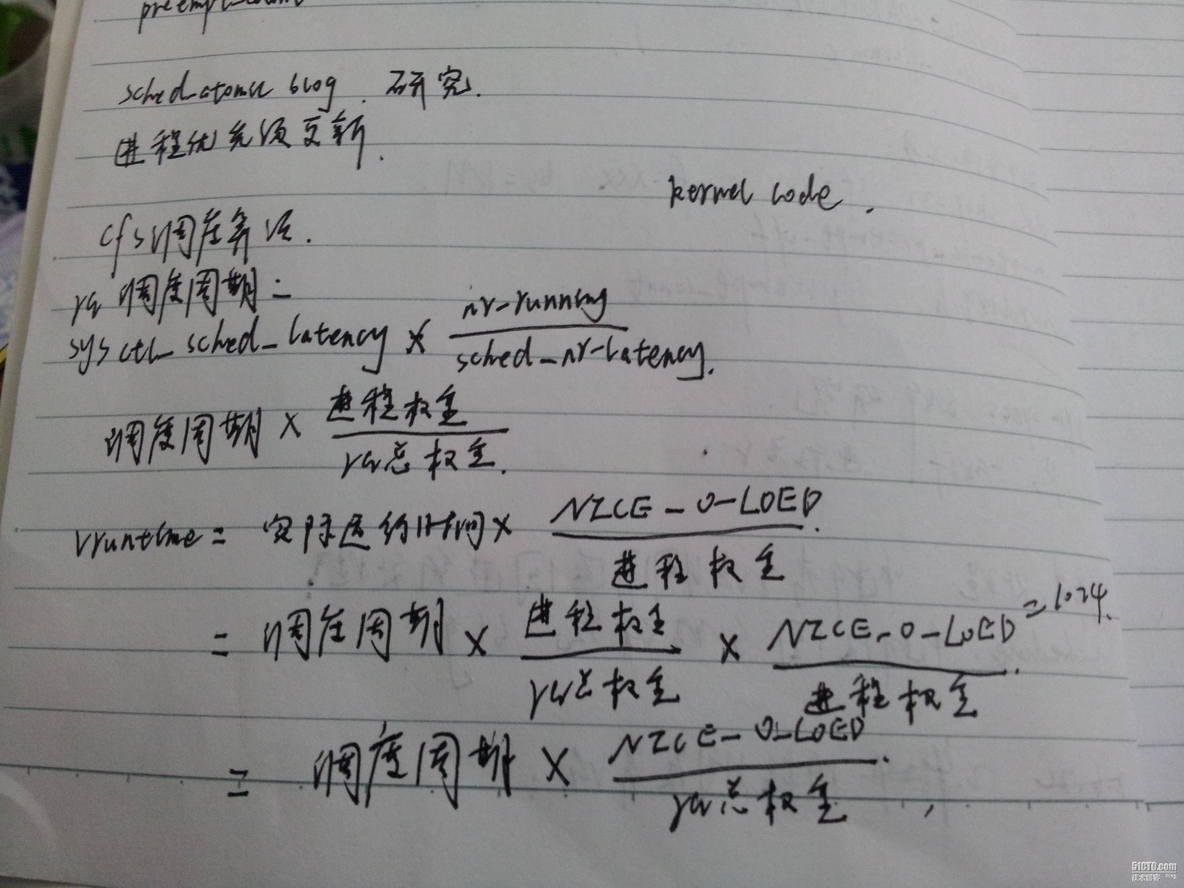 preempt_count
sched_atomic blog. 研究.
进程优先级更新.
kernel code.
cfs调度算法.
rq 调度周期 =
sysctl_sched_latency × nr-running / sched_nr-latency.
调度周期 × 进程权重 / rq总权重.
vruntime = 实际运行时间 × NICE-0-LOED / 进程权重
= 调度周期 × 进程权重 / rq总权重 × NICE-0-LOED = 1024. / 进程权重
= 调度周期 × NICE-0-LOED / rq总权重.
51CTO.com
技术博客 Blog